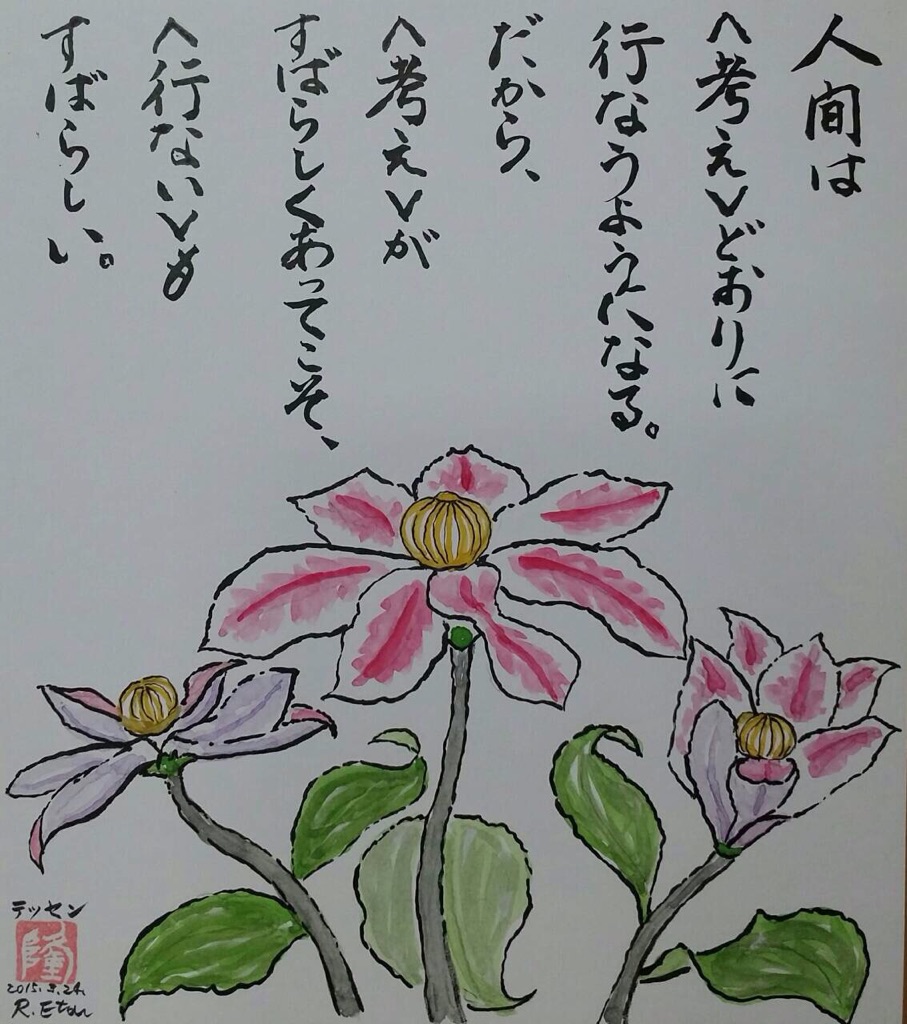 人間は
〈考え〉どおりに
行なうようになる。
だから、
〈考え〉が
すばらしくあってこそ、
〈行ない〉も
すばらしい。
テッセン
隆
2015.5.24.